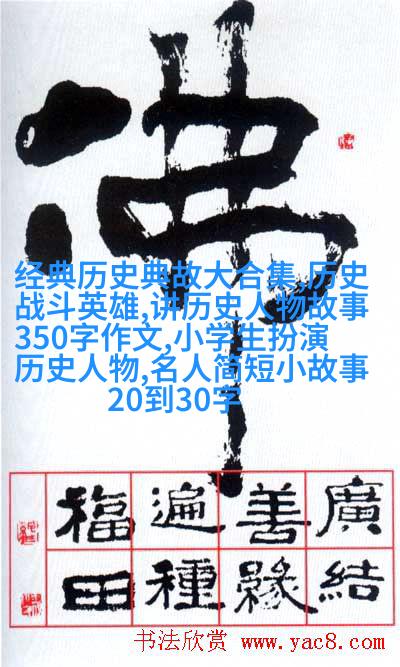 佛
经典历史典故大合集,历史
战斗英雄,讲历史人物故事
350字作文,小学生扮演
历史人物,名人简短小故事
20到30字
廣結
善緣
遍種
福田
书法欣赏 www.yac8.com